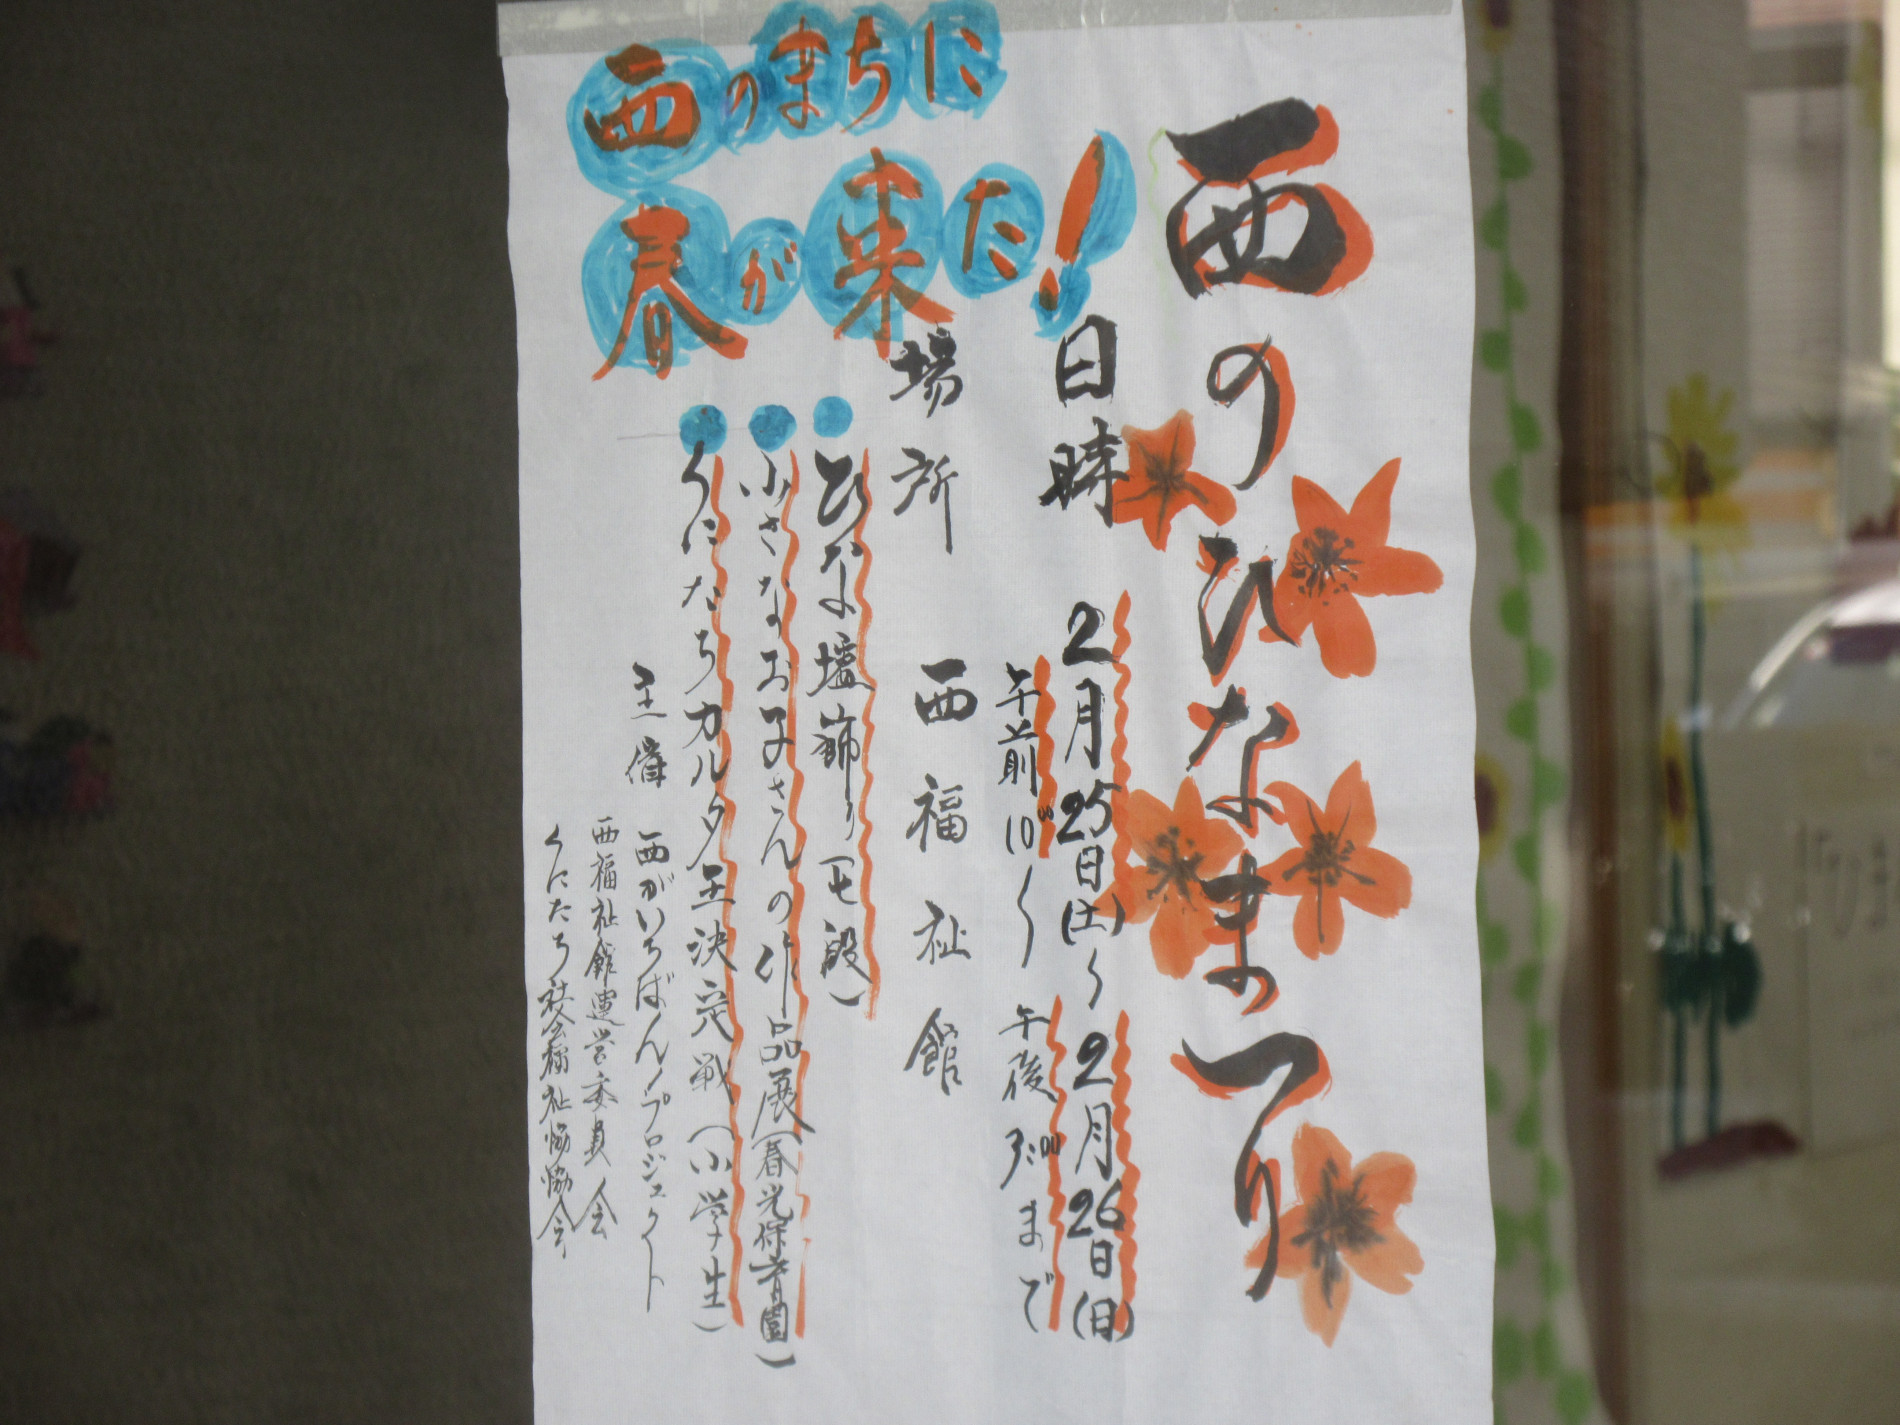 西のひなまつり
西のまちに
春が来た!
日時 2月25日(土)～2月26日(日)
午前10:00～午後3:00まで
場所 西福祉館
ひな壇飾り(七段)
小さなお子さんの作品展(春光保育園)
くにたちカルタ王決定戦(小学生)
主催 西がいちばん!プロジェクト
西福祉館運営委員会
くにたち社会福祉協議会